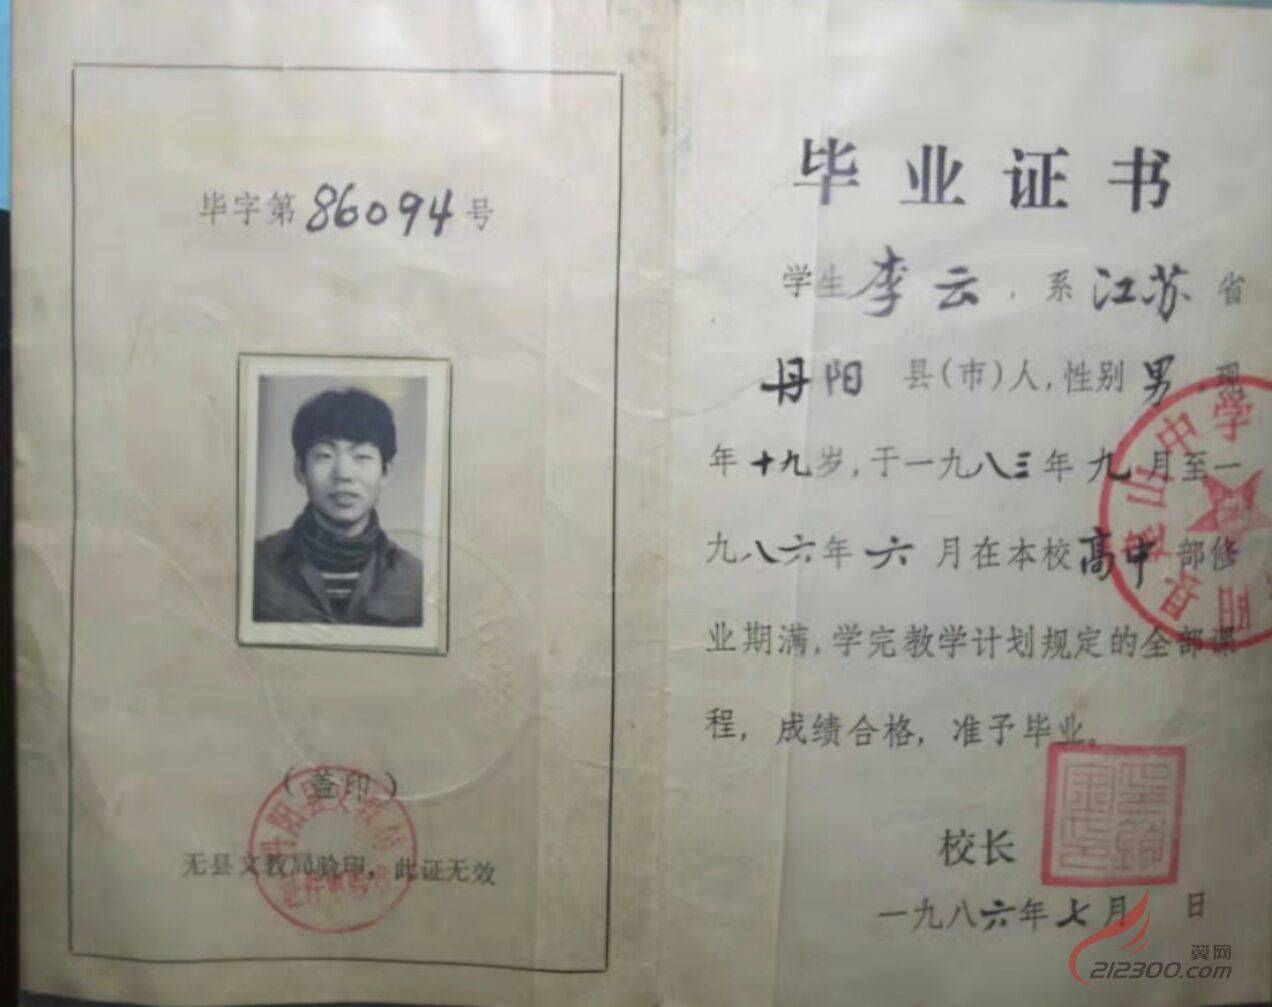 毕字第86094号
(盖印)
丹阳县文教局
无县文教局验印，此证无效
毕业证书
学生李云，系江苏省
丹阳县(市)人，性别男，现
年十九岁，于一九八三年九月至一
九八六年六月在本校高中部修
业期满，学完教学计划规定的全部课
程，成绩合格，准予毕业。
校长
一九八六年七月 日
翼网
212300.com